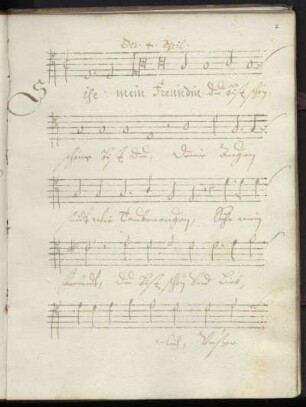 Der. 4. Theil.
Sihe mein Freundin du bist schön,
schöne bist du, Deine Augen
sind wie Taubenaugen, Sihe mein
Freundt, du bist schön und lieb,
lich, Unser